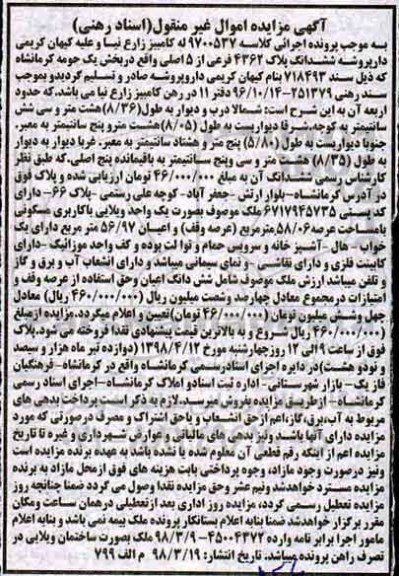 آگهی مزایده اموال غیر منقول(اسناد رهنی)
به موجب پرونده اجرائی کلاسه ۹۷۰۰۵۳۷ له کامبیز زارع نیا و علیه کیهان کریمی
داربروشه ششدانگ پلاک ۴۳۶۲ فرعی از ۵ اصلی واقع دربخش یک حومه کرمانشاه
که ذیل سند ۷۱۸۴۹۳ بنام کیهان کریمی داروپروشه صادر و تسلیم گردیدو بموجب
سند رهنی ۲۵۱۳۷۹-۹۶/۱۰/۱۴ دفتر ۱۱ در رهن کامبیز زارع نیا می باشد، که حدود
اربعه آن به این شرح است: شمالا درب و دیوار به طول(۸/۳۶) هشت متر و سی شش
سانتیمتر به کوچه،شرقا دیواریست به طول (۸/۰۵) هشت مترو پنج سانتیمتر به معبر،
جنوبا دیواریست به طول (۵/۸۰) پنج متر و هشتاد سانتیمتر به معبر، غربا دیوار به دیوار
به طول (۸/۳۵) هشت متر و سی وپنج سانتیمتر به باقیمانده پنج اصلی،که طبق نظر
کارشناس رسمی ششدانگ آن به مبلغ ۴۶/۰۰۰/۰۰۰ تومان ارزیابی شده و پلاک فوق
در آدرس کرمانشاه-بلوار ارتش -جعفرآباد- کوچه علی رستمی -پلاک ۶۶- دارای
کد پستی ۶۷۱۷۹۴۵۷۳۵ ملک موصوف بصورت یک واحد ویلایی باکاربری مسکونی
بامساحت عرصه ۵۸/۰۶ مترمربع (عرصه وقف) و اعیان ۵۶/۹۷ متر مربع دارای یک
خواب - هال -آشپز خانه و سرویس حمام و توا لت بوده و کف واحد موزائیک -دارای
کابینت فلزی و دارای نقاشی - و نمای سیمانی میباشد و دارای انشعاب آب و برق و گاز
و تلفن میباشد ارزش ملک موصوف شامل شش دانگ اعیان وحق استفاده از عرصه وقف و
امتیازات در مجموع معادل چهارصد وشصت میلیون ریال (۴۶۰/۰۰۰/۰۰۰ ریال) معادل
چهل وشش میلیون تومان (۴۶/۰۰۰/۰۰۰ تومان)تعیین و اعلام میگردد.مزایده ازمبلغ
۴۶۰/۰۰۰/۰۰۰ ریال شروع و به بالاترین قیمت پیشنهادی نقدا فروخته می شود.پلاک
فوق از ساعت ۹ الی ۱۲ روز چهارشنبه مورخ ۱۳۹۸/۴/۱۲ (دوازده تیر ماه هزار و سیصد
و نودو هشت)در دایره اجرای اسنادرسمی کرمانشاه واقع در کرمانشاه-فرهنگیان
فاز یک- بازار شهرستانی- اداره ثبت اسنادو املاک کرمانشاه-اجرای اسناد رسمی
کرمانشاه -ازطریق مزایده بفروش میرسد.لازم به ذکر است پرداخت بدهی های
مربوط به آب،برق،گاز،اعم ازحق انشعاب و یاحق اشتراک و مصرف درصورتی که مورد
مزایده دارای آنها باشد ونیز بدهی های مالیاتی و عوارض شهرداری و غیره تا تاریخ
مزایده اعم از اینکه رقم قطعی آن معلوم شده یا نشده باشد به عهده برنده مزایده است
ونیز درصورت وجود مازاد، وجوه پرداختی بابت هزینه های فوق ازمحل مازاد به برنده
مزایده مسترد خواهدشد ونیم عشر وحق مزایده نقدا وصول می گردد ضمنا چنانچه روز
مزایده تعطیل رسمی گردد، مزایده روز اداری بعد ازتعطیلی درهمان ساعت ومکان
مقرر برگزار خواهدشد ضمنا بنابه اعلام بستانکار پرونده ملک بیمه نمی باشد و بنابه اعلام
مامور اجرا برابر نامه وارده ۴۵۰۰۴۳۷۲-۹۸/۳/۹ ملک بصورت ساختمان ویلایی در
تصرف راهن پرونده میباشد. تاریخ انتشار: ۹۸/۳/۱۹ م الف ۷۹۹